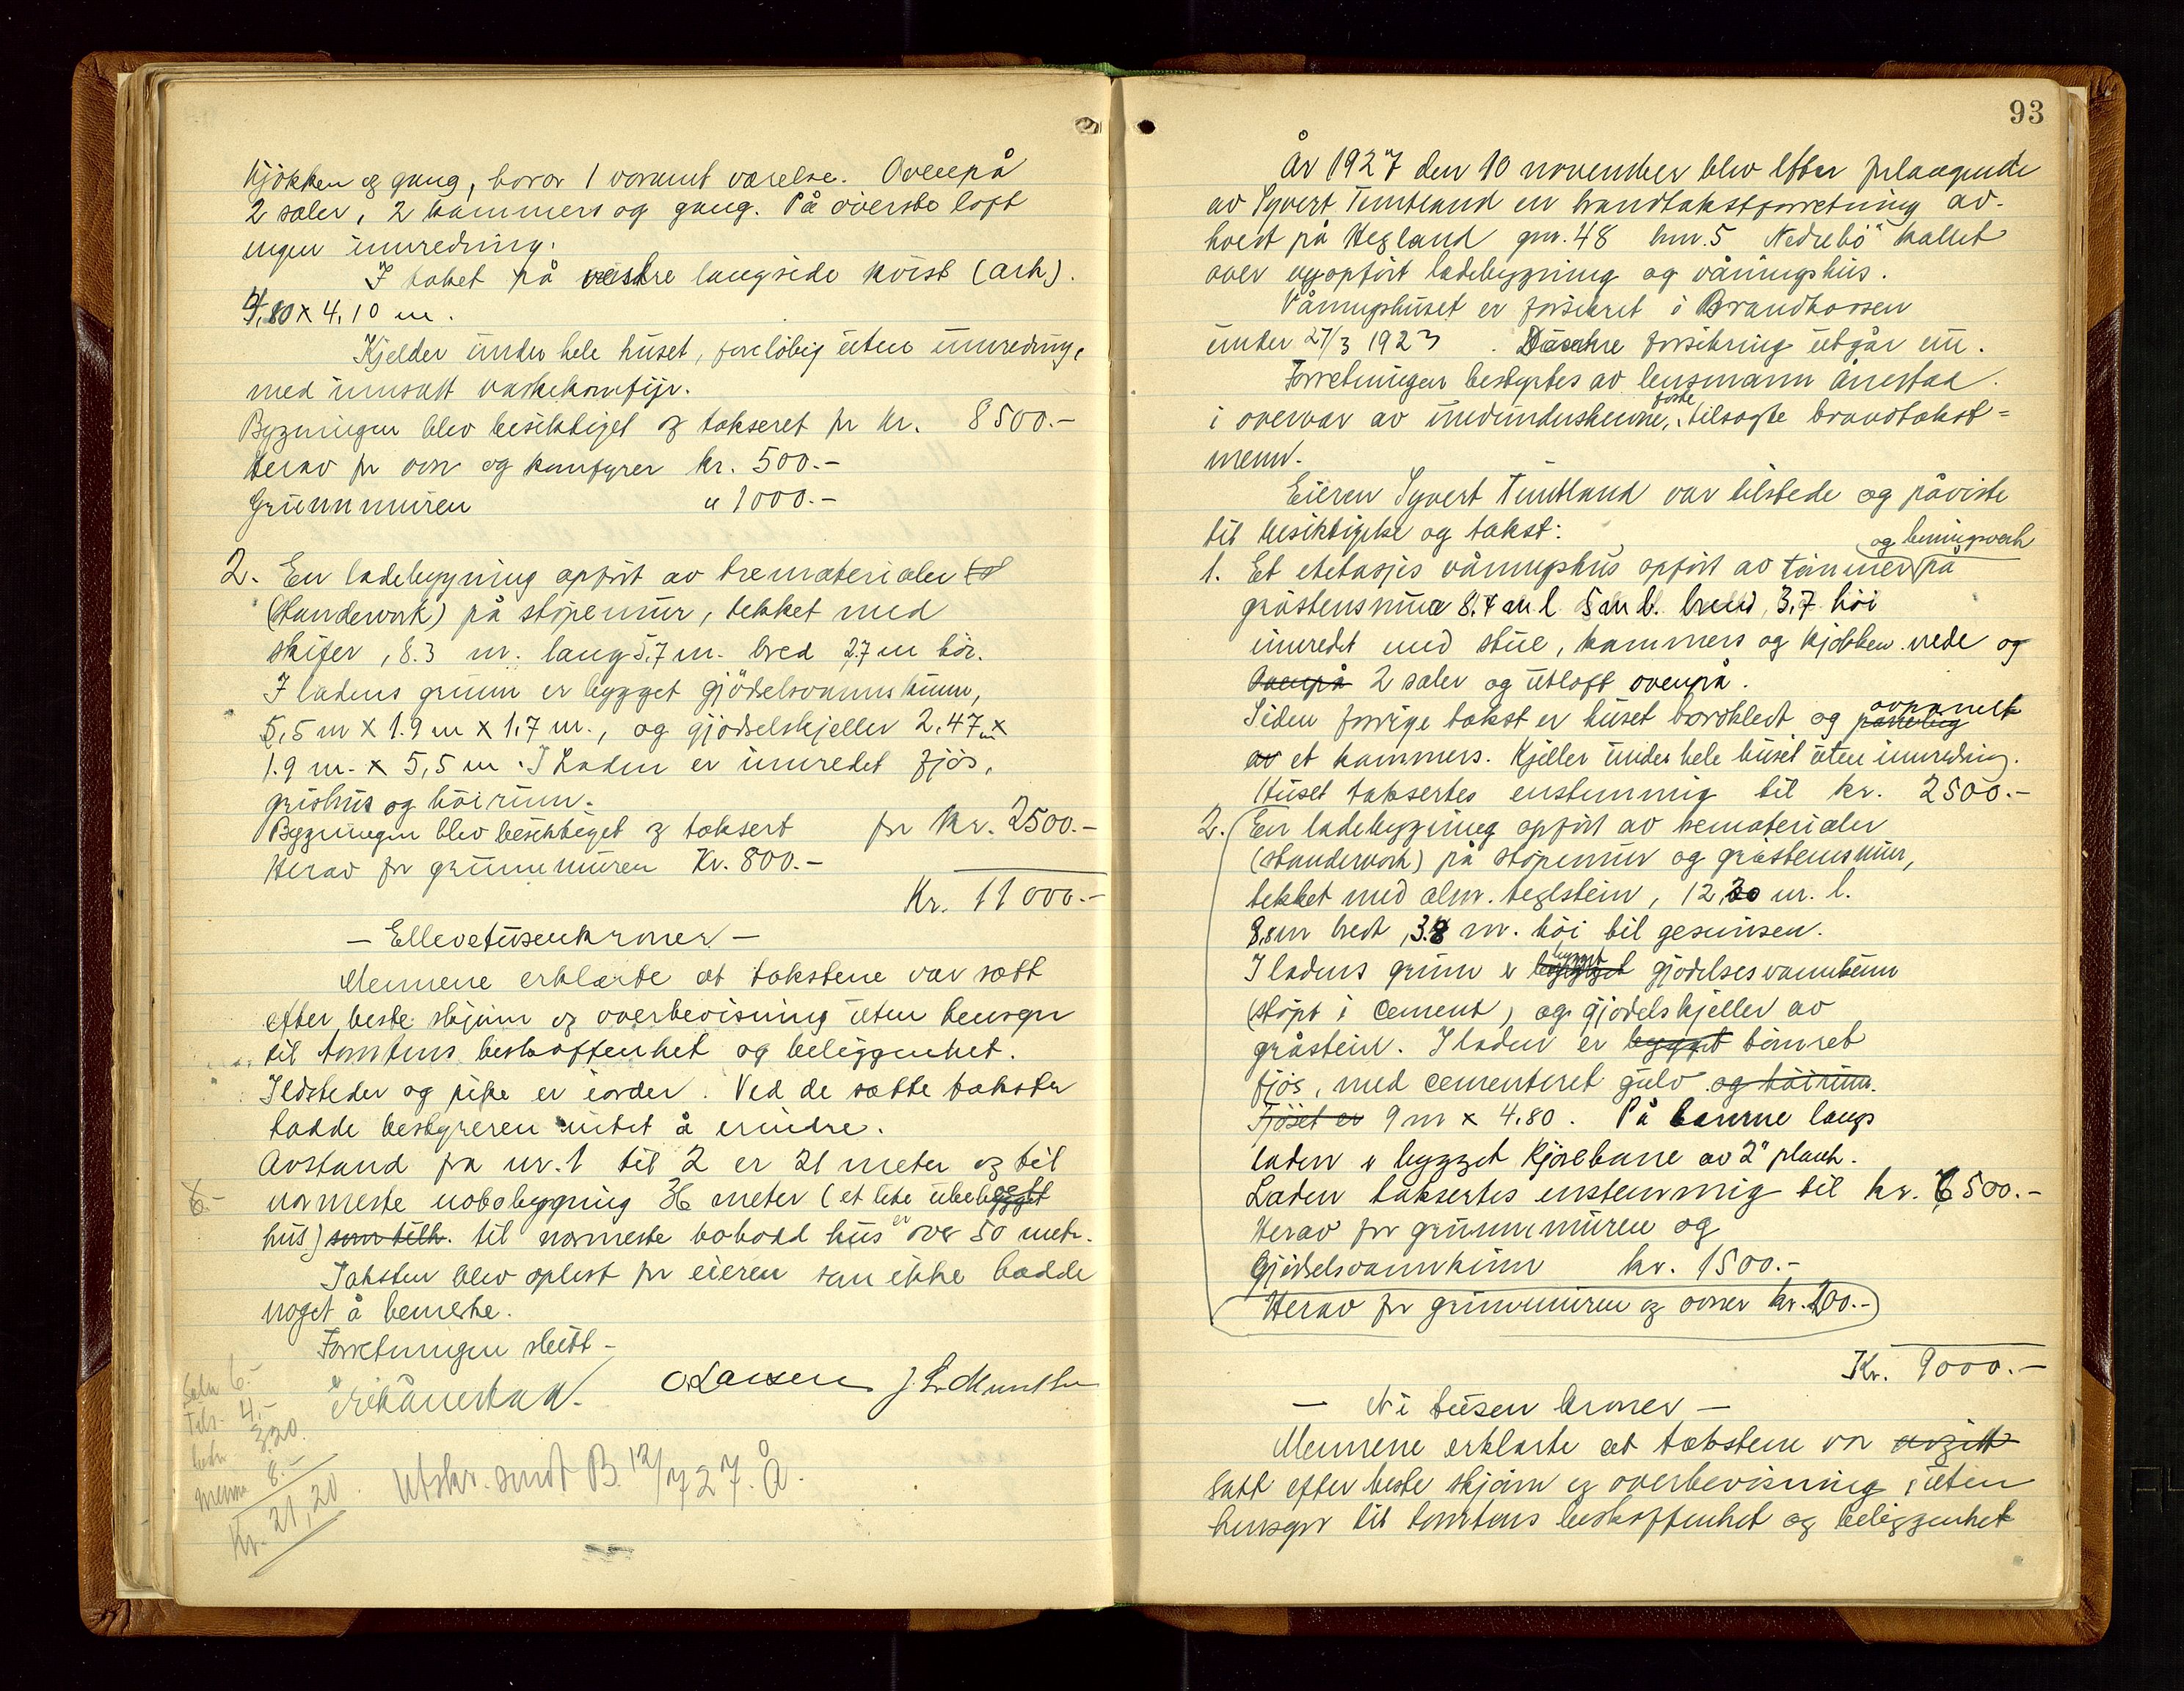 kjøkken og gang, hvorav 1 værelse. Ovenpå
2 saler, 2 kammers og gang. På øverste loft
ingen innredning.
I taket på vestre langside kvist (ark).
4,80 x 4,10 m.
Kjelder under hele huset, foreløbig uten innredning,
med innsatt vaskekomfyr.
Bygningen blev besiktiget og taksert for kr. 8500.-
Herav for ovn og komfyrer kr. 500.-
Grunnmuren " 1000.-
2. En ladebygning opført av trematerialer
(standerverk) på støpemur, tekket med
skifer, 8.3 m. lang 5,7 m. bred 2,7 m høi.
I ladens grunn er bygget gjødselsvannskum,
5,5 m x 1.9 m x 1,7 m., og gjødselskjeller 2.47 m x
1.9 m. x 5,5 m. I Laden er innredet fjøs,
grishus og høirum.
Bygningen blev besiktiget og taksert for Kr. 2500.-
Herav for grunnmuren Kr. 800.-
Kr. 11000.-
- Ellevetusenkroner -
Mennene erklærte at takstene var satt
efter beste skjønn og overbevisning uten hensyn
til tomtens beskaffenhet og beliggenhet.
Ildsteder og pipe er i orden. Ved de satte takster
hadde bestyreren intet å erindre.
Avstand fra nr. 1 til 2 er 21 meter og til
6.- nærmeste nabobygning 36 meter (et lite ubebygget
hus) som tilh. til nærmeste bebodd hus er over 50 metr.
Taksten blev oplest for eieren som ikke hadde
noget å bemerke.
Forretningen slutt -
Erik Ånestad. O. Larsen J. L. Munthe
6.-
4,-
3,20.
8.-
Kr. 21,20.
Utskr. sendt B. 12/7 27. Å.
93
År 1927 den 10 november blev efter forlangende
av Syvert Timtland en brandtakstforretning av-
holdt på Hegland gnr. 48 bnr. 5 "Nedrebø" kallet
over nyopført ladebygning og våningshus.
Våningshuset er forsikret i Brandkassen
under 27/3 1923. Denne forsikring utgår nu.
Forretningen bestyrtes av lensmann Ånestad.
i overvær av medunderskrevne, faste tilsagte brandtakst=
menn.
Eieren Syvert Timtland var tilstede og påviste
til besiktigelse og takst:
og beningsverk
1. Et etetasjes våningshus opført av tømmer på
gråstensmur 8,4 m l. 5 m b. bredd, 3,7 høi
innredet med stue, kammers og kjøkken nede og
ovenpå 2 saler og utloft ovenpå.
Siden forrige takst er huset bordkledt og panelug avpanelt
av et kammers. Kjeller under hele huset uten innredning.
Huset taksertes enstemmig til kr. 2500.-
2. En ladebygning opført av trematerialer
(standerverk) på støpemur og gråstensmur,
tekket med alm. teglstein, 12,20 m. l.
8,8 m bredt, 3.8 m. høi til gesimsen.
I ladens grunn er bygget gjødselsvannkum
(støpt i cement) og gjødelskjeller av
gråstein. I laden er bygget tømret
fjøs, med cementeret gulv og høirum.
Fjøset er 9 m x 4.80. På låvene langs
laden er bygget kjørebane av 2" plank.
Laden taksertes enstemmig til kr. 6500.-
Herav for grunnmuren og
gjødselsvannkum kr. 1500.-
Herav for grunnmuren og ovner kr. 200.-
Kr. 9000.-
- Ni tusen kroner -
Mennene erklærte at takstene var avgitt
satt efter beste skjønn og overbevisning, uten
hensyn til tomtens beskaffenhet og beliggenhet